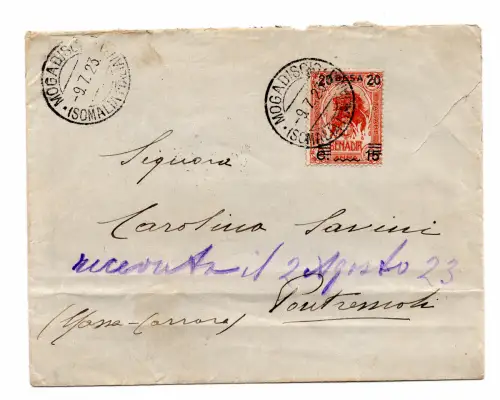 MOGADISCIO
-9.7.23
(SOMALIA
MOGADISCIO
-9.7.23
(SOMALIA
20 BESA 20
BENADIR
C. 15
Signora
Carolina Savini
ricevuta il 2 Agosto 23
Pontremoli
(Massa-Carrara)